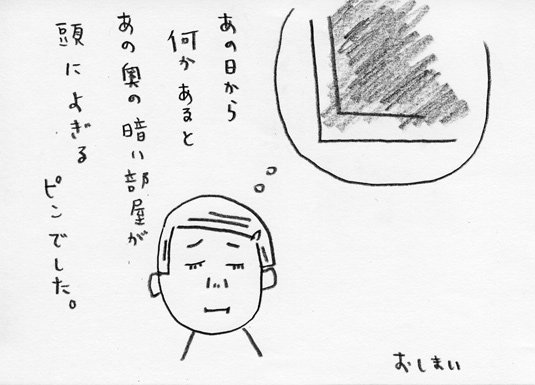 あの日から
何かあると
あの奥の暗い部屋が
頭によぎる
ピンでした。
おしまい